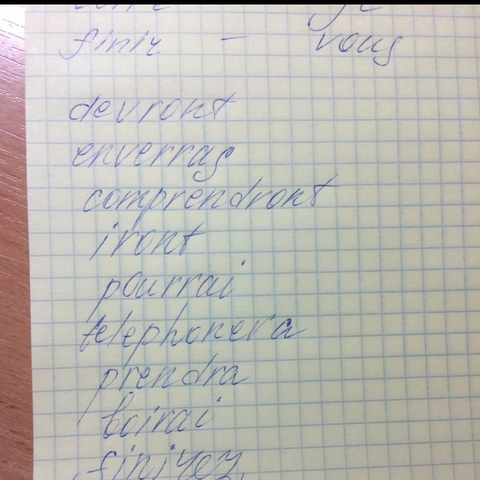 finir - vous
devront
enverras
comprendront
iront
pourrai
telephonera
prendra
boirai
finirez